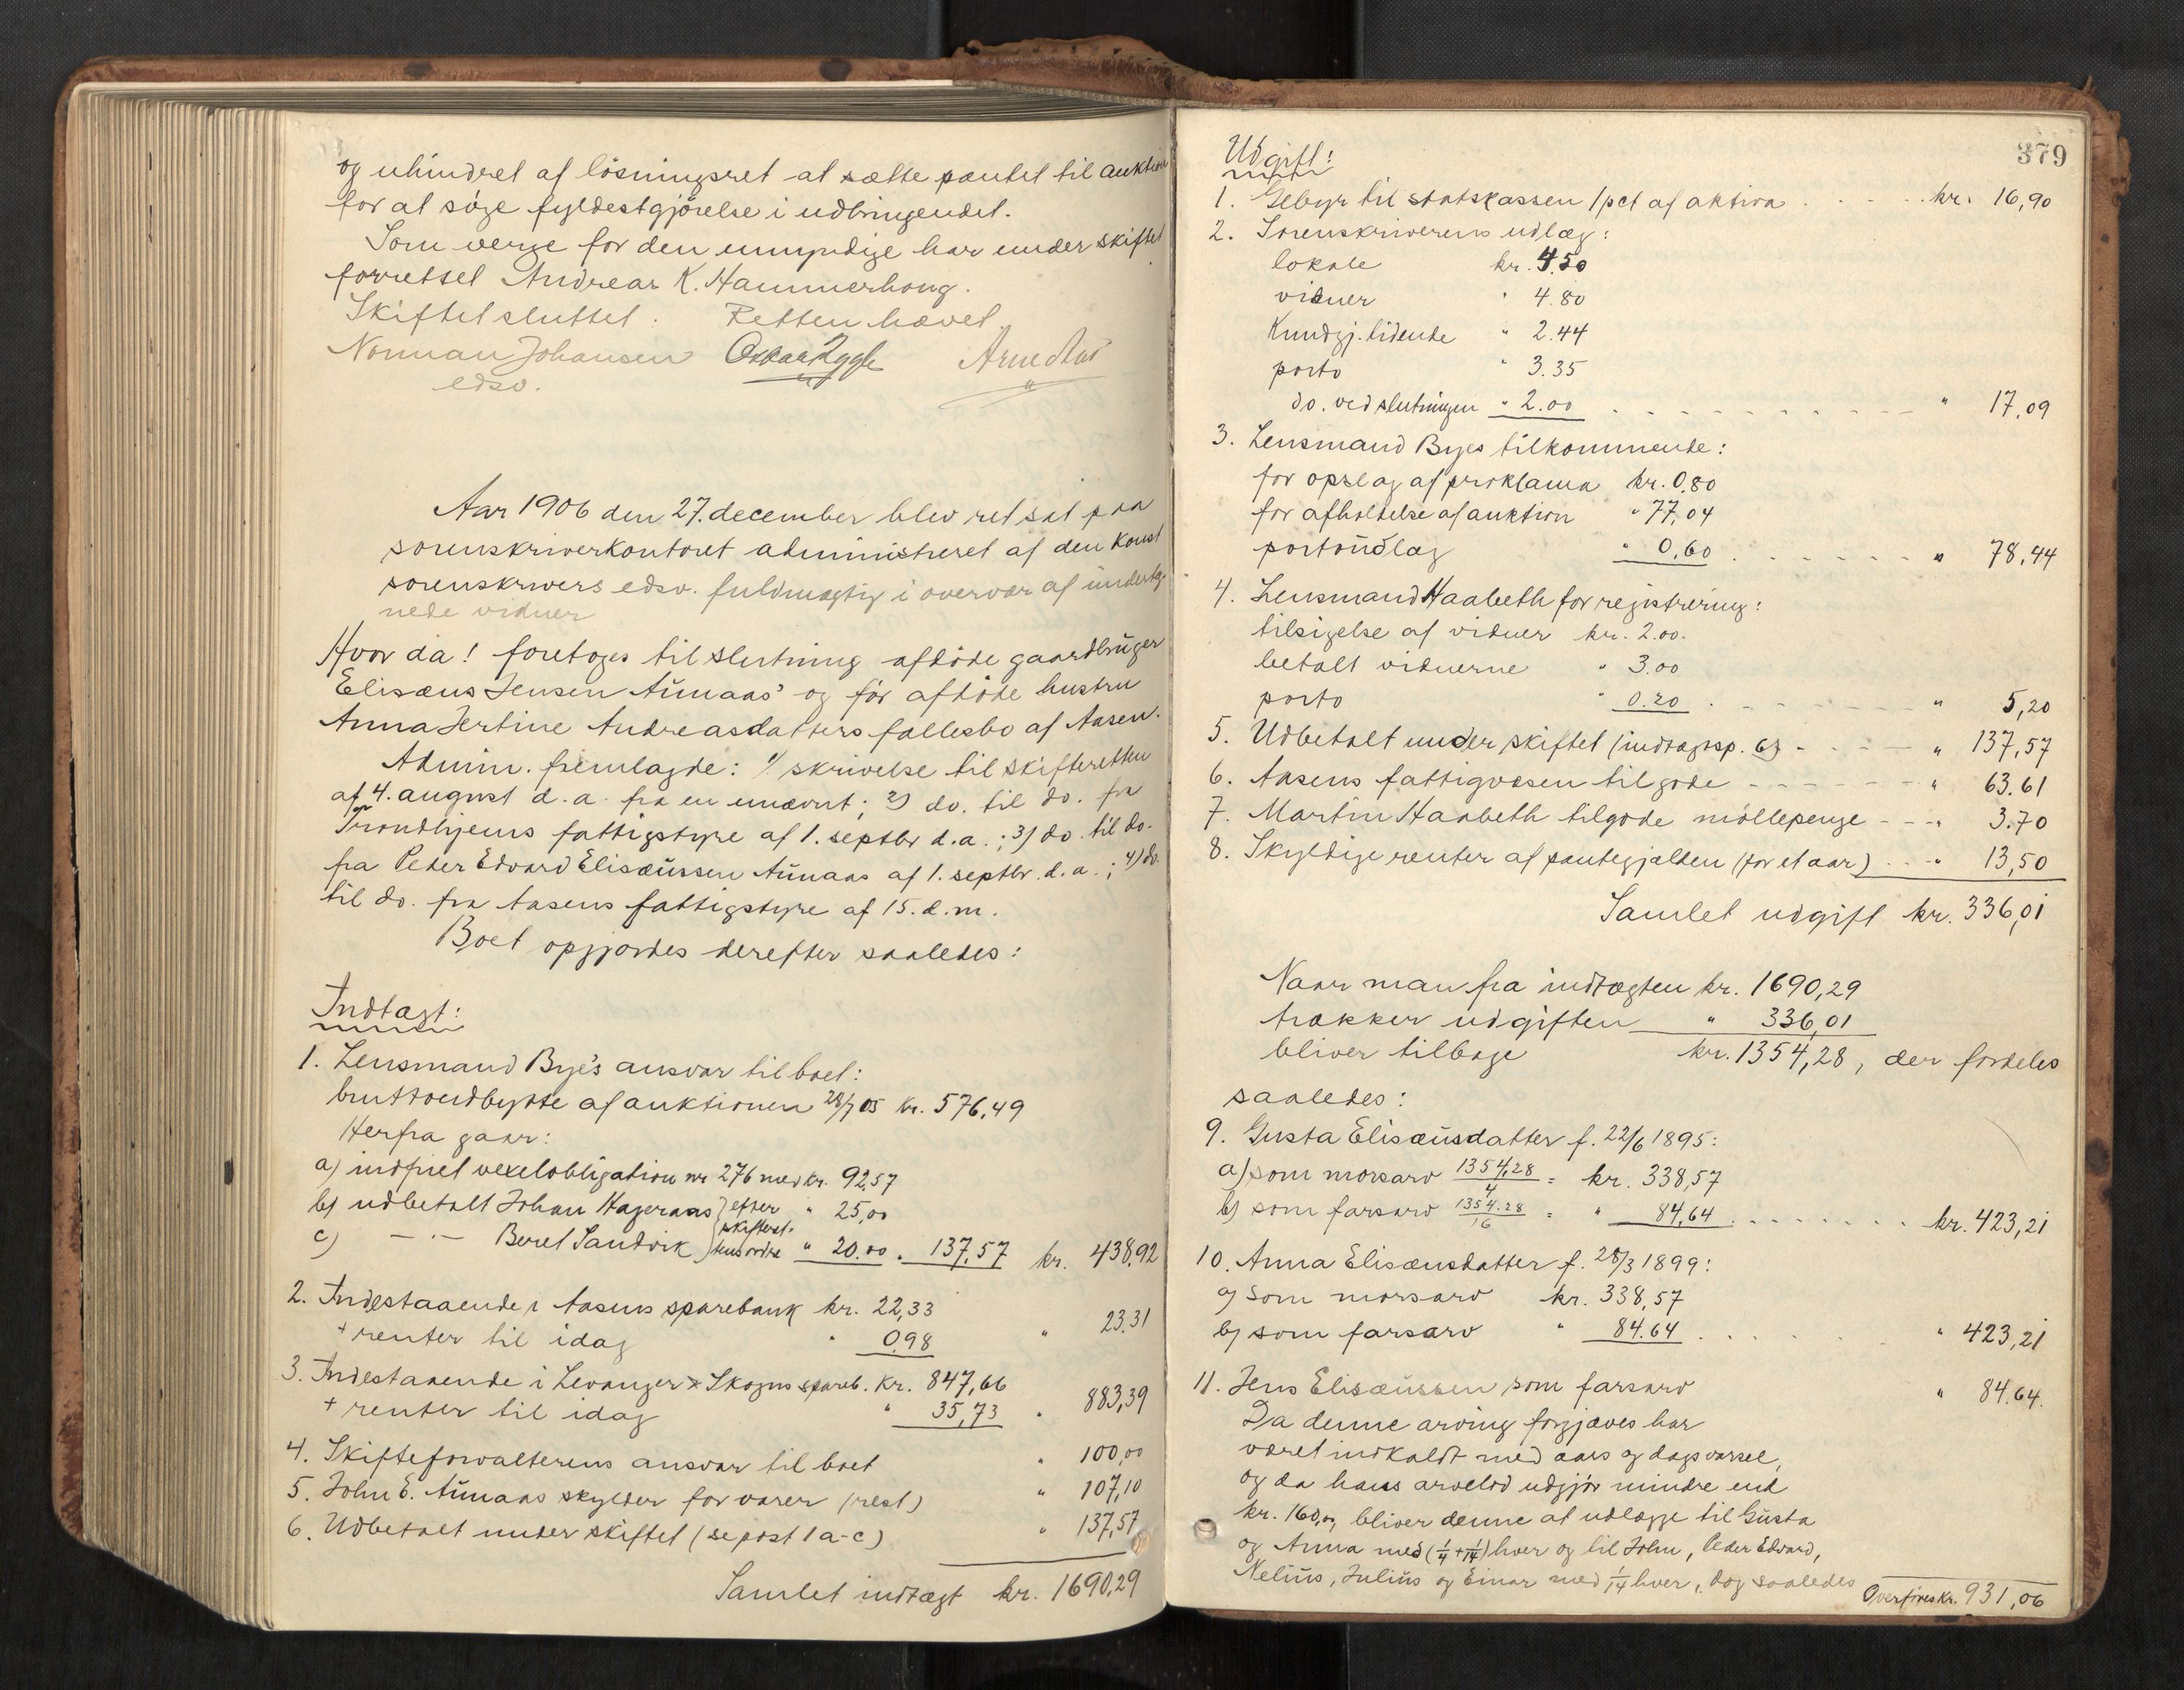 og uhindret af løsningsret at sætte pantet til auktion
for at søge fyldestgjørelse i udbringendet.
Som verge for den umyndige har under skiftet
forrettet Andreas K. Hammerhoug.
Skiftet sluttet. Retten hævet.
Norman Johansen Arne Aas
edsv.
Aar 1906 den 27. december blev ret sat paa
sorenskriverkontoret administreret af den konst
sorenskrivers edsv. fuldmægtig i overvær af underteg-
nede vidner
Hvor da! foretoges til slutning afdøde gaardbruger
Elisæus Jensen Aunaas' og før afdøde hustru
Anna Jertine Andreasdatters fællesbo af Aasen.
Admin. fremlagde: 1) skrivelse til skifteretten
af 4. august d.a. fra en unævnt; 2) do. til do. fra
Trondhjems fattigstyre af 1. septbr d.a.; 3) do. til do.
fra Peder Edvard Elisæussen Aunaas af 1. septbr. d.a.; 4) do.
til do. fra Aasens fattigstyre af 15. d.m.
Boet opgjordes derefter saaledes:
Indtægt:
1. Lensmand Bye's ansvar til boet:
bruttoudbytte af auktionen 28/7 05 kr. 576,49
Herfra gaar:
a) indfriet vexelobligation nr 276 med kr. 92,57
b) udbetalt Johan Hageraas } efter " 25,00
c) —"— Beret Sandvik } skifteret- tens ordre " 20.00 " 137,57 kr. 438,92
2. Indestaaende i Aasens sparebank kr. 22,33
+ renter til idag " 0,98 " 23.31
3. Indestaaende i Levanger & Skogns spareb. kr. 847,66
+ renter til idag " 35,73 " 883,39
4. Skifteforvalterens ansvar til boet " 100,00
5. John E. Aunaas skylder for varer (rest) " 107,10
6. Udbetalt under skiftet (se post 1 a-c) " 137,57
Samlet indtægt kr. 1690,29
379
Udgift:
1. Gebyr til statskassen 1 pct af aktiva . . . . kr. 16,90
2. Sorenskriverens udlæg:
lokale kr. 4.50
vidner " 4.80
Kundgj. tidende " 2.44
porto " 3.35
do. ved slutningen " 2.00 " 17,09
3. Lensmand Byes tilkommende:
for opslag af proklama kr. 0,80
for afholdelse af auktion " 77,04
portoudlæg " 0,60 " 78,44
4. Lensmand Haabeth for registrering:
tilsigelse af vidner kr. 2.00.
betalt vidnerne " 3.00
porto " 0.20 " 5,20
5. Udbetalt under skiftet (indtægtsp. 6) " 137,57
6. Aasens fattigvæsen tilgode " 63.61
7. Martin Haabeth tilgode møllepenge " 3.70
8. Skyldige renter af pantegjælden (for et aar) " 13,50
Samlet udgift kr. 336,01
Naar man fra indtægten kr. 1690,29
trækker udgiften " 336,01
bliver tilbage kr. 1354,28, der fordeles
saaledes:
9. Gusta Elisæusdatter f. 22/6 1895:
a) som morsarv 1354,28/4 = kr. 338,57
b) som farsarv 1354.28/16 = " 84,64 kr. 423,21
10. Anna Elisæusdatter f. 28/3 1899:
a) som morsarv kr. 338,57
b) som farsarv " 84.64 " 423,21
11. Jens Elisæussen som farsarv " 84.64.
Da denne arving forgjæves har
været indkaldt med aars og dags varsel,
og da hans arvelod udgjør mindre end
kr. 160,00, bliver denne at udlægge til Gusta
og Anna med (1/4+1/14) hver og til John, Peder Edvard,
Nelius, Julius og Einar med 1/14 hver, dog saaledes
Overføres kr. 931,06